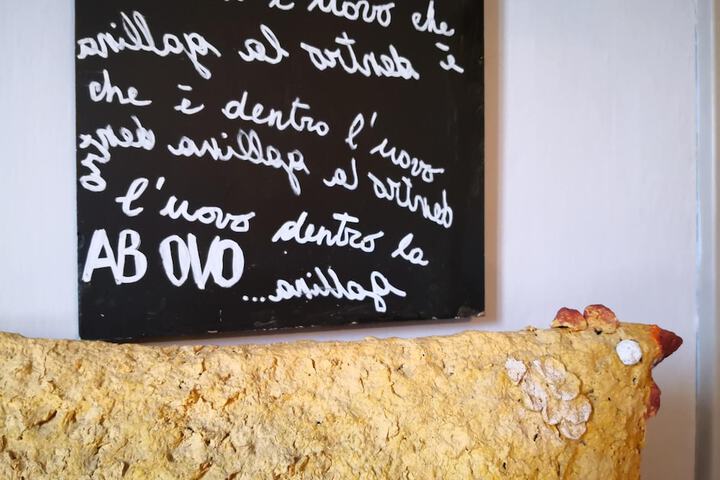 è l'uovo che
è dentro la gallina
che è dentro l'uovo
dentro la gallina dentro
l'uovo dentro la
gallina...
AB OVO